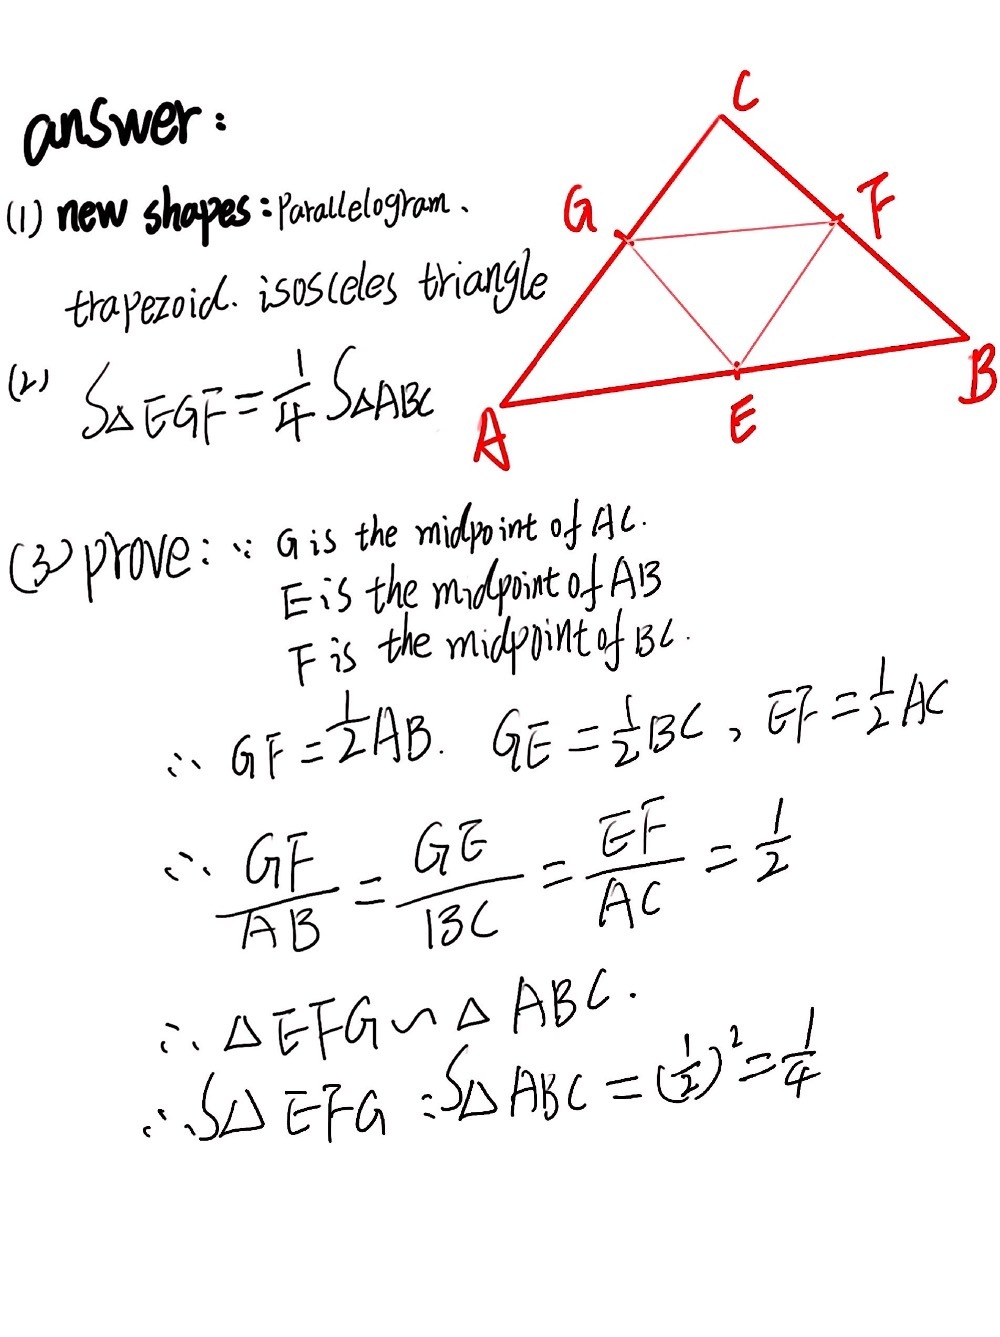 answer:
(1) new shapes: Parallelogram.
trapezoid. isosceles triangle
(2) S△EGF = 1/4 S△ABC
C
G
F
A
E
B
(3) prove: ∵ G is the midpoint of AC.
E is the midpoint of AB
F is the midpoint of BC.
∴ GF = 1/2 AB. GE = 1/2 BC, EF = 1/2 AC
∴ GF/AB = GE/BC = EF/AC = 1/2
∴ △EFG ∽ △ABC.
∴ S△EFG : S△ABC = (1/2)² = 1/4